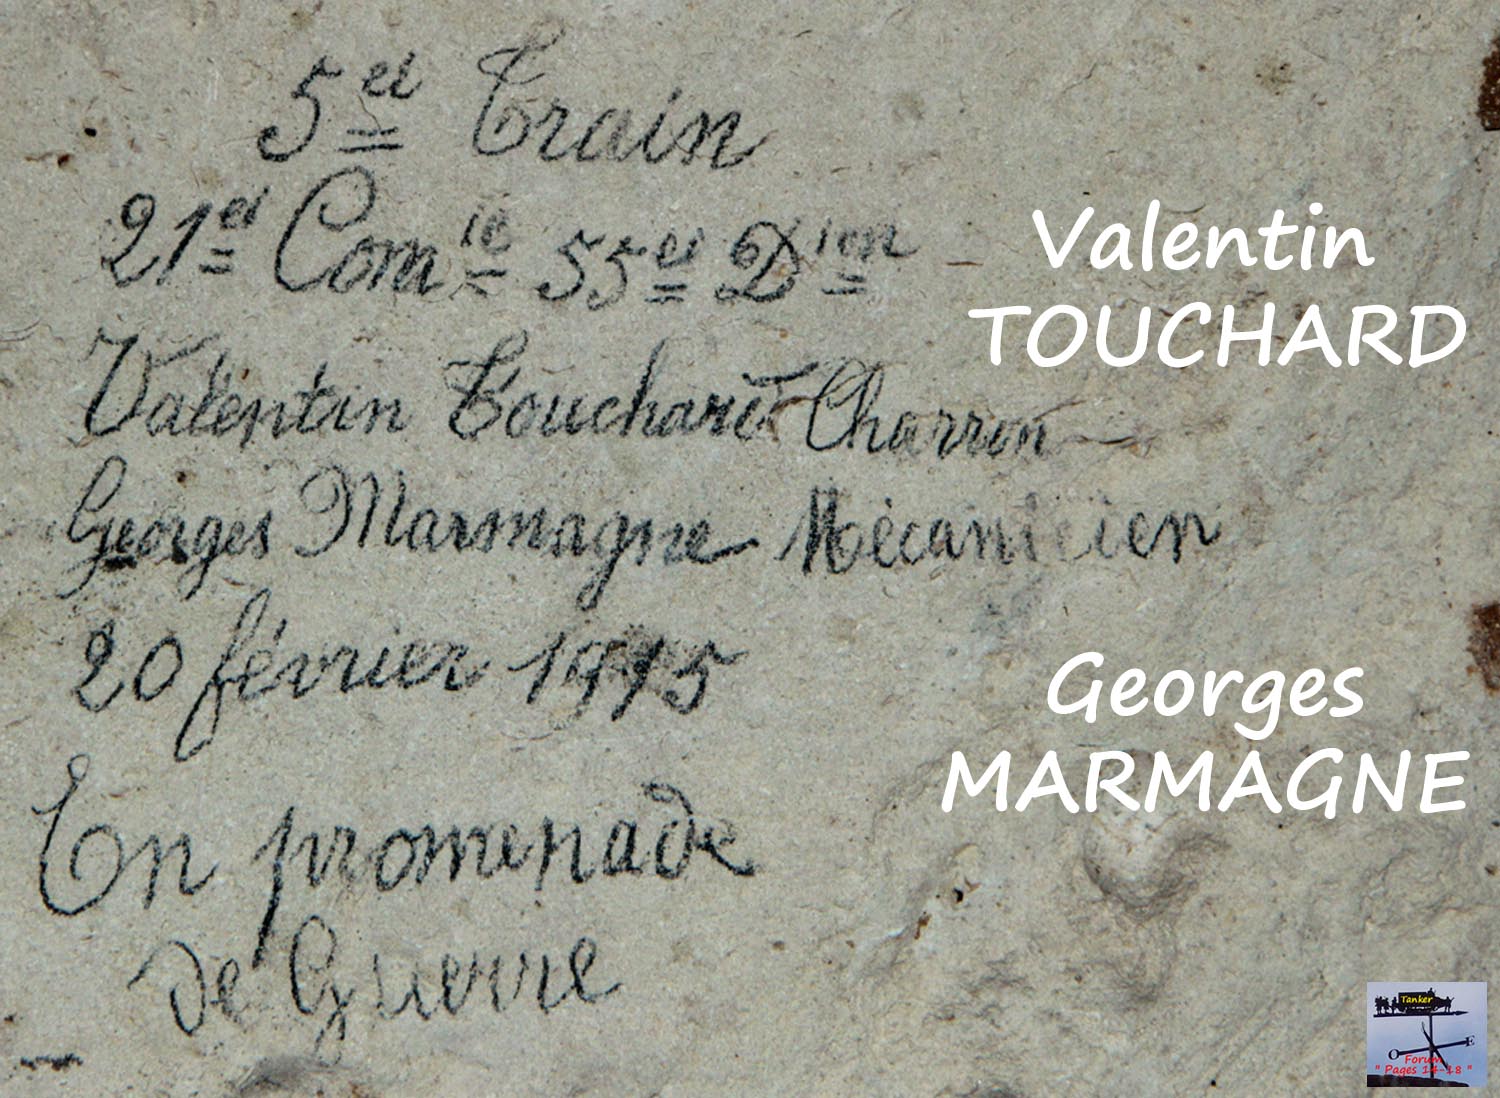 5ei Train
21ei Comie 55ei Dion
Valentin Touchard Charron
Georges Marmagne Mécanicien
20 février 1915
En promenade
de Guerre
Valentin
TOUCHARD
Georges
MARMAGNE
Tanker
O E
Forum
" Pages 14-18 "